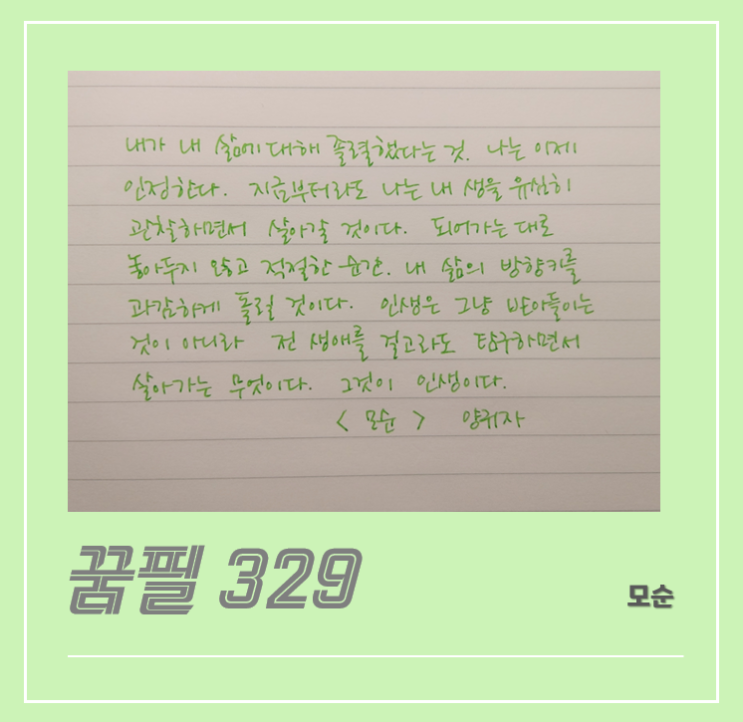 내가 내 삶에 대해 졸렬했다는 것. 나는 이제
인정한다. 지금부터라도 나는 내 생을 유심히
관찰하면서 살아갈 것이다. 되어가는 대로
놓아두지 않고 적절한 순간, 내 삶의 방향키를
과감하게 돌릴 것이다. 인생은 그냥 받아들이는
것이 아니라 전 생애를 걸고라도 탐구하면서
살아가는 무엇이다. 그것이 인생이다.
< 모순 > 양귀자
꿈필 329
모순